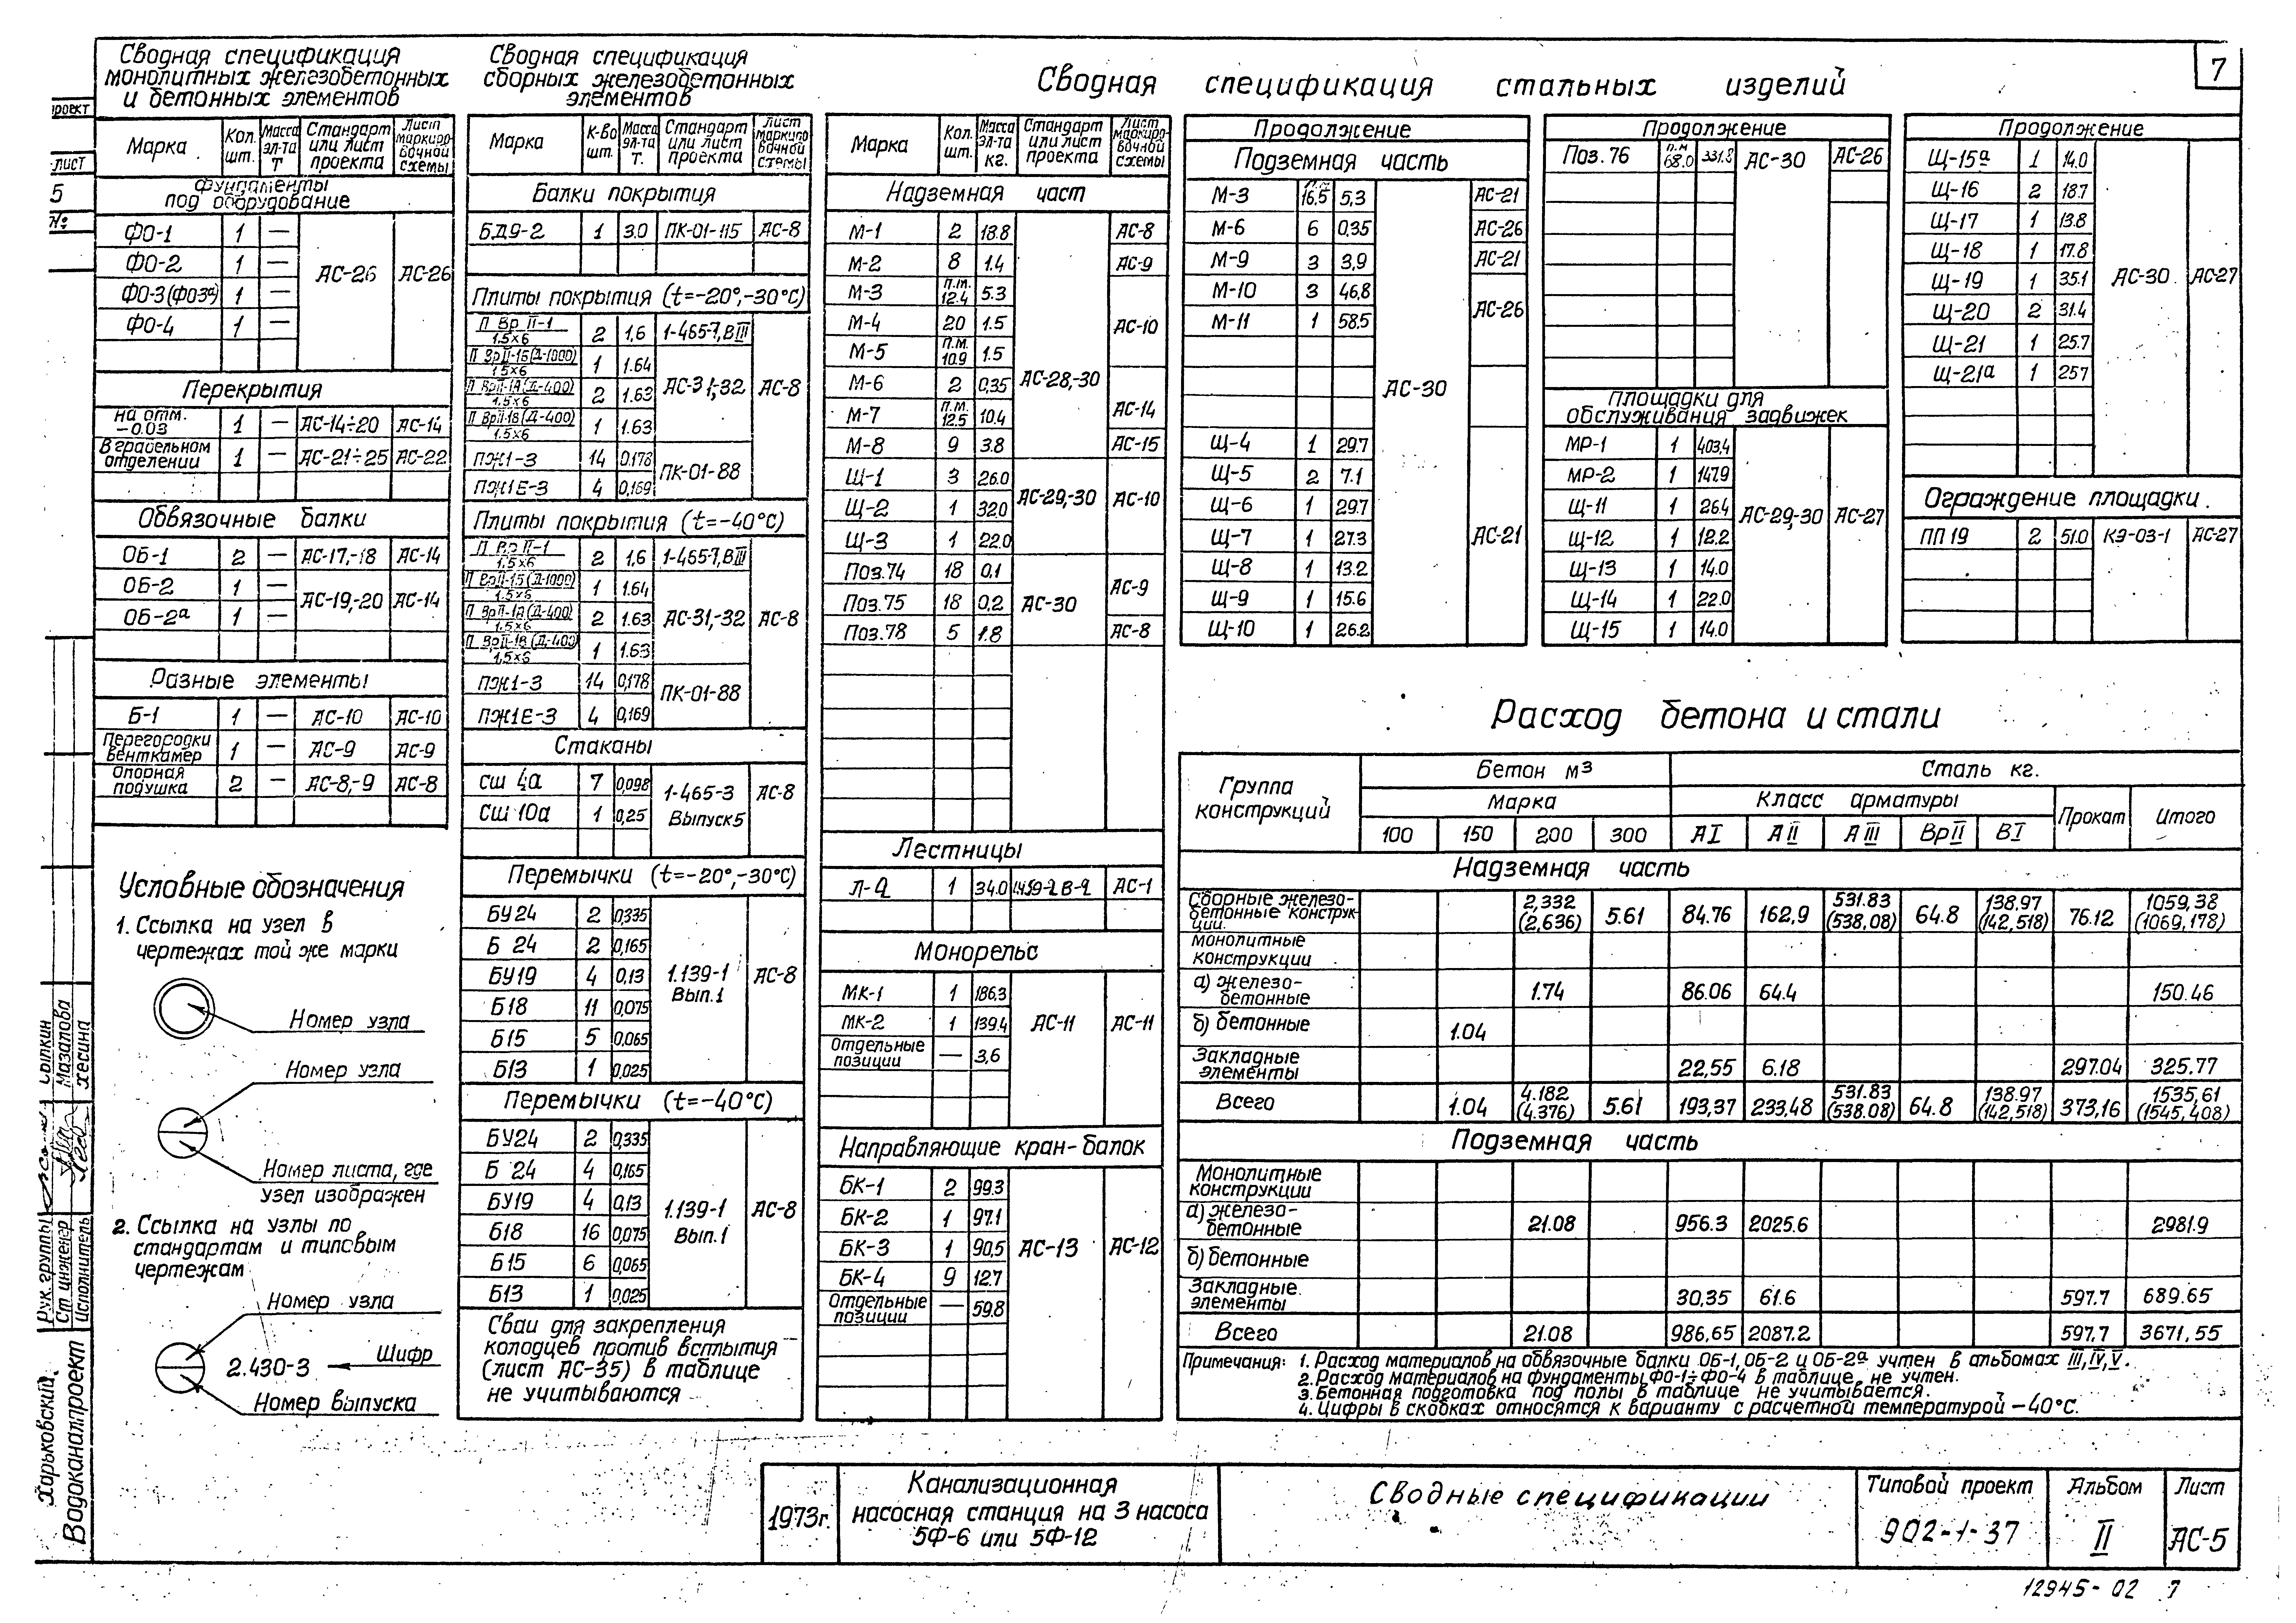 7
проект
лист
5
Сводная спецификация
монолитных железобетонных
и бетонных элементов
Марка Кол. шт. Масса эл-та Т Стандарт или лист проекта Лист маркировочной схемы
Фундаменты
под оборудование
ФО-1 1 —
ФО-2 1 — АС-26 АС-26
ФО-3(ФО3а) 1 —
ФО-4 1 —
Перекрытия
на отм. -0.03 1 — АС-14÷20 АС-14
В грабельном отделении 1 — АС-21÷25 АС-22
Обвязочные балки
ОБ-1 2 — АС-17,-18 АС-14
ОБ-2 1 — АС-19,-20 АС-14
ОБ-2а 1 —
Разные элементы
Б-1 1 — АС-10 АС-10
Перегородки венткамер 1 — АС-9 АС-9
Опорная подушка 2 — АС-8,-9 АС-8
Условные обозначения
1. Ссылка на узел в
чертежах той же марки
Номер узла
Номер узла
Номер листа, где
узел изображен
2. Ссылка на узлы по
стандартам и типовым
чертежам
Номер узла
2.430-3 Шифр
Номер выпуска
Сводная спецификация
сборных железобетонных
элементов
Марка К-во шт. Масса эл-та Т. Стандарт или лист проекта Лист маркировочной схемы
Балки покрытия
БД9-2 1 3.0 ПК-01-115 АС-8
Плиты покрытия (t=-20°,-30°С)
П Вр II-1 1.5×6 2 1,6 1-465-7, В III
П ВрII-1б(Д-1000) 1.5×6 1 1.64
П ВрII-1а(Д-400) 1.5×6 2 1.63 АС-31,-32 АС-8
П ВрII-1в(Д-400) 1.5×6 1 1.63
ПЖ1-3 14 0.178 ПК-01-88
ПЖ1Е-3 4 0,169
Плиты покрытия (t=-40°С)
П Вр II-1 1,5×6 2 1,6 1-465-7, В III
П ВрII-1б(Д-1000) 1.5×6 1 1.64
П ВрII-1а(Д-400) 1.5×6 2 1.63 АС-31,-32 АС-8
П ВрII-1в(Д-400) 1,5×6 1 1.63
ПЖ1-3 14 0,178 ПК-01-88
ПЖ1Е-3 4 0,169
Стаканы
СШ 4а 7 0,098 1-465-3 АС-8
СШ 10а 1 0,25 Выпуск 5
Перемычки (t=-20°,-30°С)
БУ24 2 0,335
Б 24 2 0,165
БУ19 4 0,13 1.139-1 АС-8
Б18 11 0,075 Вып.1
Б15 5 0,065
Б13 1 0,025
Перемычки (t=-40°С)
БУ24 2 0,335
Б 24 4 0,165
БУ19 4 0,13 1.139-1 АС-8
Б18 16 0,075 Вып.1
Б15 6 0,065
Б13 1 0,025
Сваи для закрепления
колодцев против всплытия
(лист АС-35) в таблице
не учитываются
Сводная спецификация стальных изделий
Марка Кол. шт. Масса эл-та кг. Стандарт или лист проекта Лист маркировочной схемы
Надземная част
М-1 2 18.8 АС-8
М-2 8 1.4 АС-9
М-3 п.м. 12.4 5.3
М-4 20 1.5 АС-10
М-5 п.м. 10.9 1.5
М-6 2 0,35 АС-28,-30
М-7 п.м. 12.5 10.4 АС-14
М-8 9 3.8 АС-15
Щ-1 3 26.0
Щ-2 1 32.0 АС-29,-30 АС-10
Щ-3 1 22.0
Поз.74 18 0,1
Поз.75 18 0,2 АС-30 АС-9
Поз.78 5 1.8 АС-8
Лестницы
Л-2 1 34.0 1.459-2 В-2 АС-1
Монорельс
МК-1 1 186.3
МК-2 1 139.4 АС-11 АС-11
Отдельные позиции — 3,6
Направляющие кран-балок
БК-1 2 99.3
БК-2 1 97.1
БК-3 1 90,5 АС-13 АС-12
БК-4 9 12.7
Отдельные позиции — 59.8
Продолжение
Подземная часть
М-3 п.м. 16,5 5,3 АС-21
М-6 6 0,35 АС-26
М-9 3 3,9 АС-21
М-10 3 46,8 АС-26
М-11 1 58,5
АС-30
Щ-4 1 29.7
Щ-5 2 7.1
Щ-6 1 29.7
Щ-7 1 27.3 АС-21
Щ-8 1 13.2
Щ-9 1 15.6
Щ-10 1 26.2
Продолжение
Поз.76 п.м 68.0 331.8 АС-30 АС-26
Площадки для
обслуживания задвижек
МР-1 1 403,4
МР-2 1 147.9
Щ-11 1 26.4 АС-29,-30 АС-27
Щ-12 1 12.2
Щ-13 1 14.0
Щ-14 1 22.0
Щ-15 1 14.0
Продолжение
Щ-15а 1 14.0
Щ-16 2 18.7
Щ-17 1 13.8
Щ-18 1 17.8
Щ-19 1 35.1 АС-30 АС-27
Щ-20 2 31.4
Щ-21 1 25.7
Щ-21а 1 25.7
Ограждение площадки.
ПП19 2 51.0 КЭ-03-1 АС-27
Расход бетона и стали
Группа конструкций Бетон м3 Сталь кг.
Марка Класс арматуры Прокат Итого
100 150 200 300 АI АII АIII ВрII ВI
Надземная часть
Сборные железобетонные конструкции. 2,332 (2,636) 5.61 84.76 162,9 531.83 (538,08) 64.8 138.97 (142,518) 76.12 1059,38 (1069,178)
Монолитные конструкции
а) железобетонные 1.74 86.06 64.4 150.46
б) бетонные 1.04
Закладные элементы 22,55 6.18 297.04 325.77
Всего 1.04 4.182 (4.376) 5.61 193,37 233,48 531.83 (538.08) 64.8 138.97 (142,518) 373,16 1535,61 (1545,408)
Подземная часть
Монолитные конструкции
а) железобетонные 21.08 956.3 2025.6 2981.9
б) бетонные
Закладные элементы 30,35 61.6 597.7 689.65
Всего 21.08 986,65 2087.2 597.7 3671,55
Примечания: 1. Расход материалов на обвязочные балки ОБ-1, ОБ-2 и ОБ-2а учтен в альбомах III, IV, V.
2. Расход материалов на фундаменты ФО-1÷ФО-4 в таблице не учтен.
3. Бетонная подготовка под полы в таблице не учитывается.
4. Цифры в скобках относятся к варианту с расчетной температурой -40°С.
Харьковский
Водоканалпроект
Рук. группы
Ст. инженер Мазалова
Исполнитель Хесина
1973г.
Канализационная
насосная станция на 3 насоса
5Ф-6 или 5Ф-12
Сводные спецификации
Типовой проект
902-1-37
Альбом
II
Лист
АС-5
12945-02 7